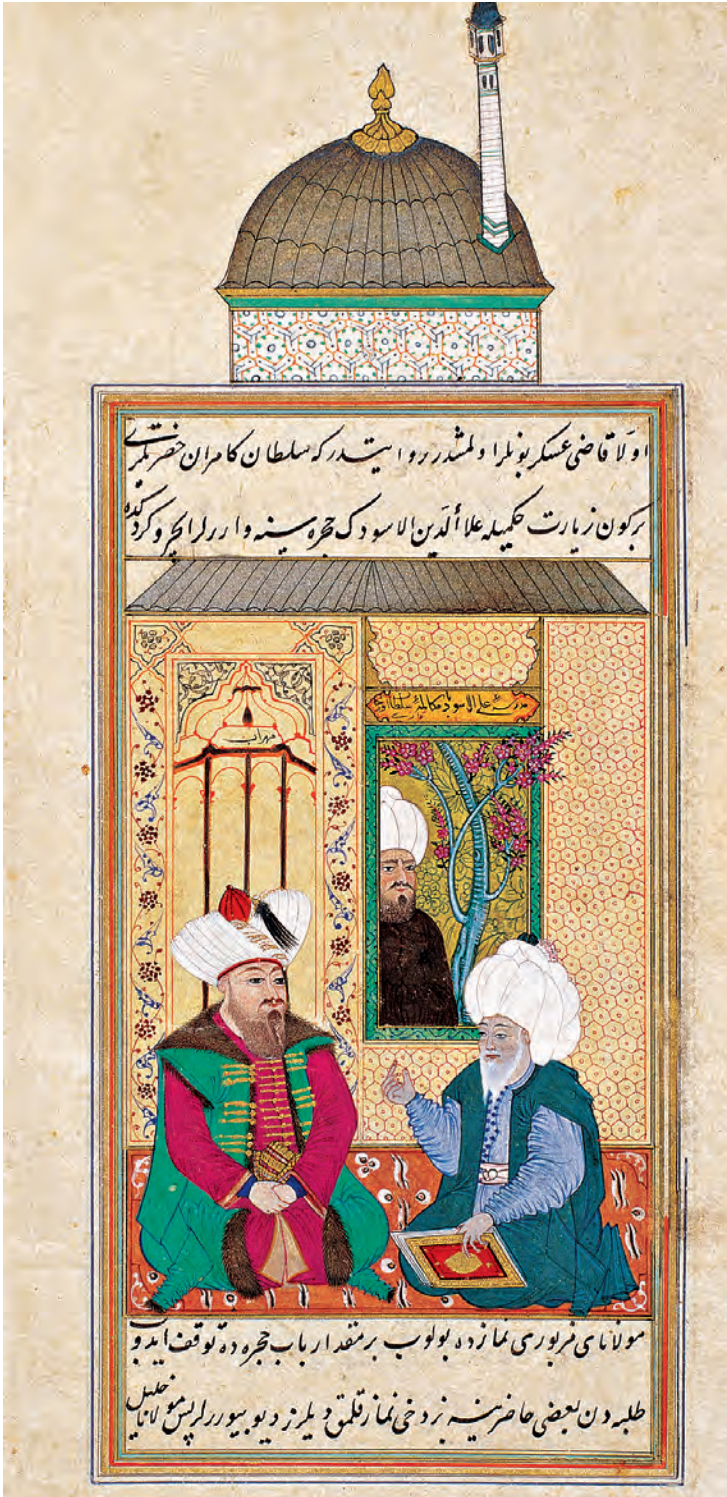 اولا قاضی عسکر بونلرا ولمشدر روا ایتدر که سلطان کامران حضرتلری
برکون زیارت حکمیله علاألدین الاسودک حجره سینه واررلر الحر و کردکده
علی الاسود مکالمۀ سلطان
مهراب
مولانای مزبوری نمازده بولوب بر مقدار باب حجره ده توقف ایدوب
طلبه دن بعضی حاضرینه بزدخی نماز قلمق دیلرز دیو بیوررلر پس مولانا خلیل